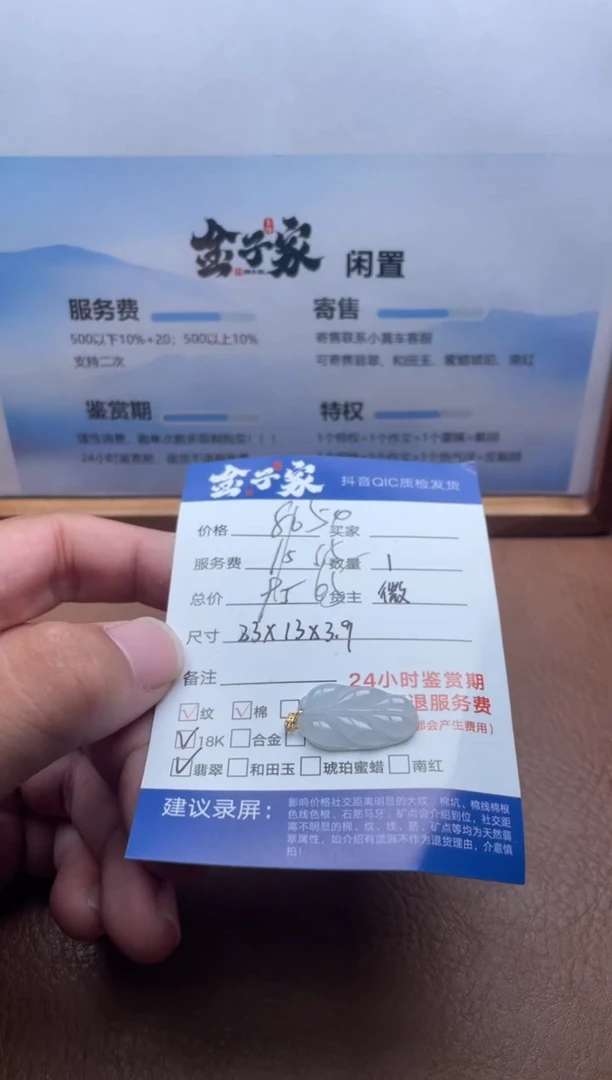 金子家 闲置
服务费
500以下10%+20；500以上10%
支持二次
寄售
寄售联系小黄车客服
可寄售翡翠、和田玉、蜜蜡琥珀、南红
鉴赏期
特权
金子家 抖音QIC质检发货
价格 8650 买家
服务费 数量 1
总价 货主 微
尺寸 23×13×3.9
备注
24小时鉴赏期
退服务费
都会产生费用）
纹 棉
18K 合金
翡翠 和田玉 琥珀蜜蜡 南红
建议录屏：
影响价格社交距离明显的大纹，棉坑、棉线棉根
色线色根，石筋马牙，矿点会介绍到位，社交距
离不明显的棉、纹、线、筋、矿点等均为天然翡
翠属性，如介绍有遗漏不作为退货理由，介意慎
拍！